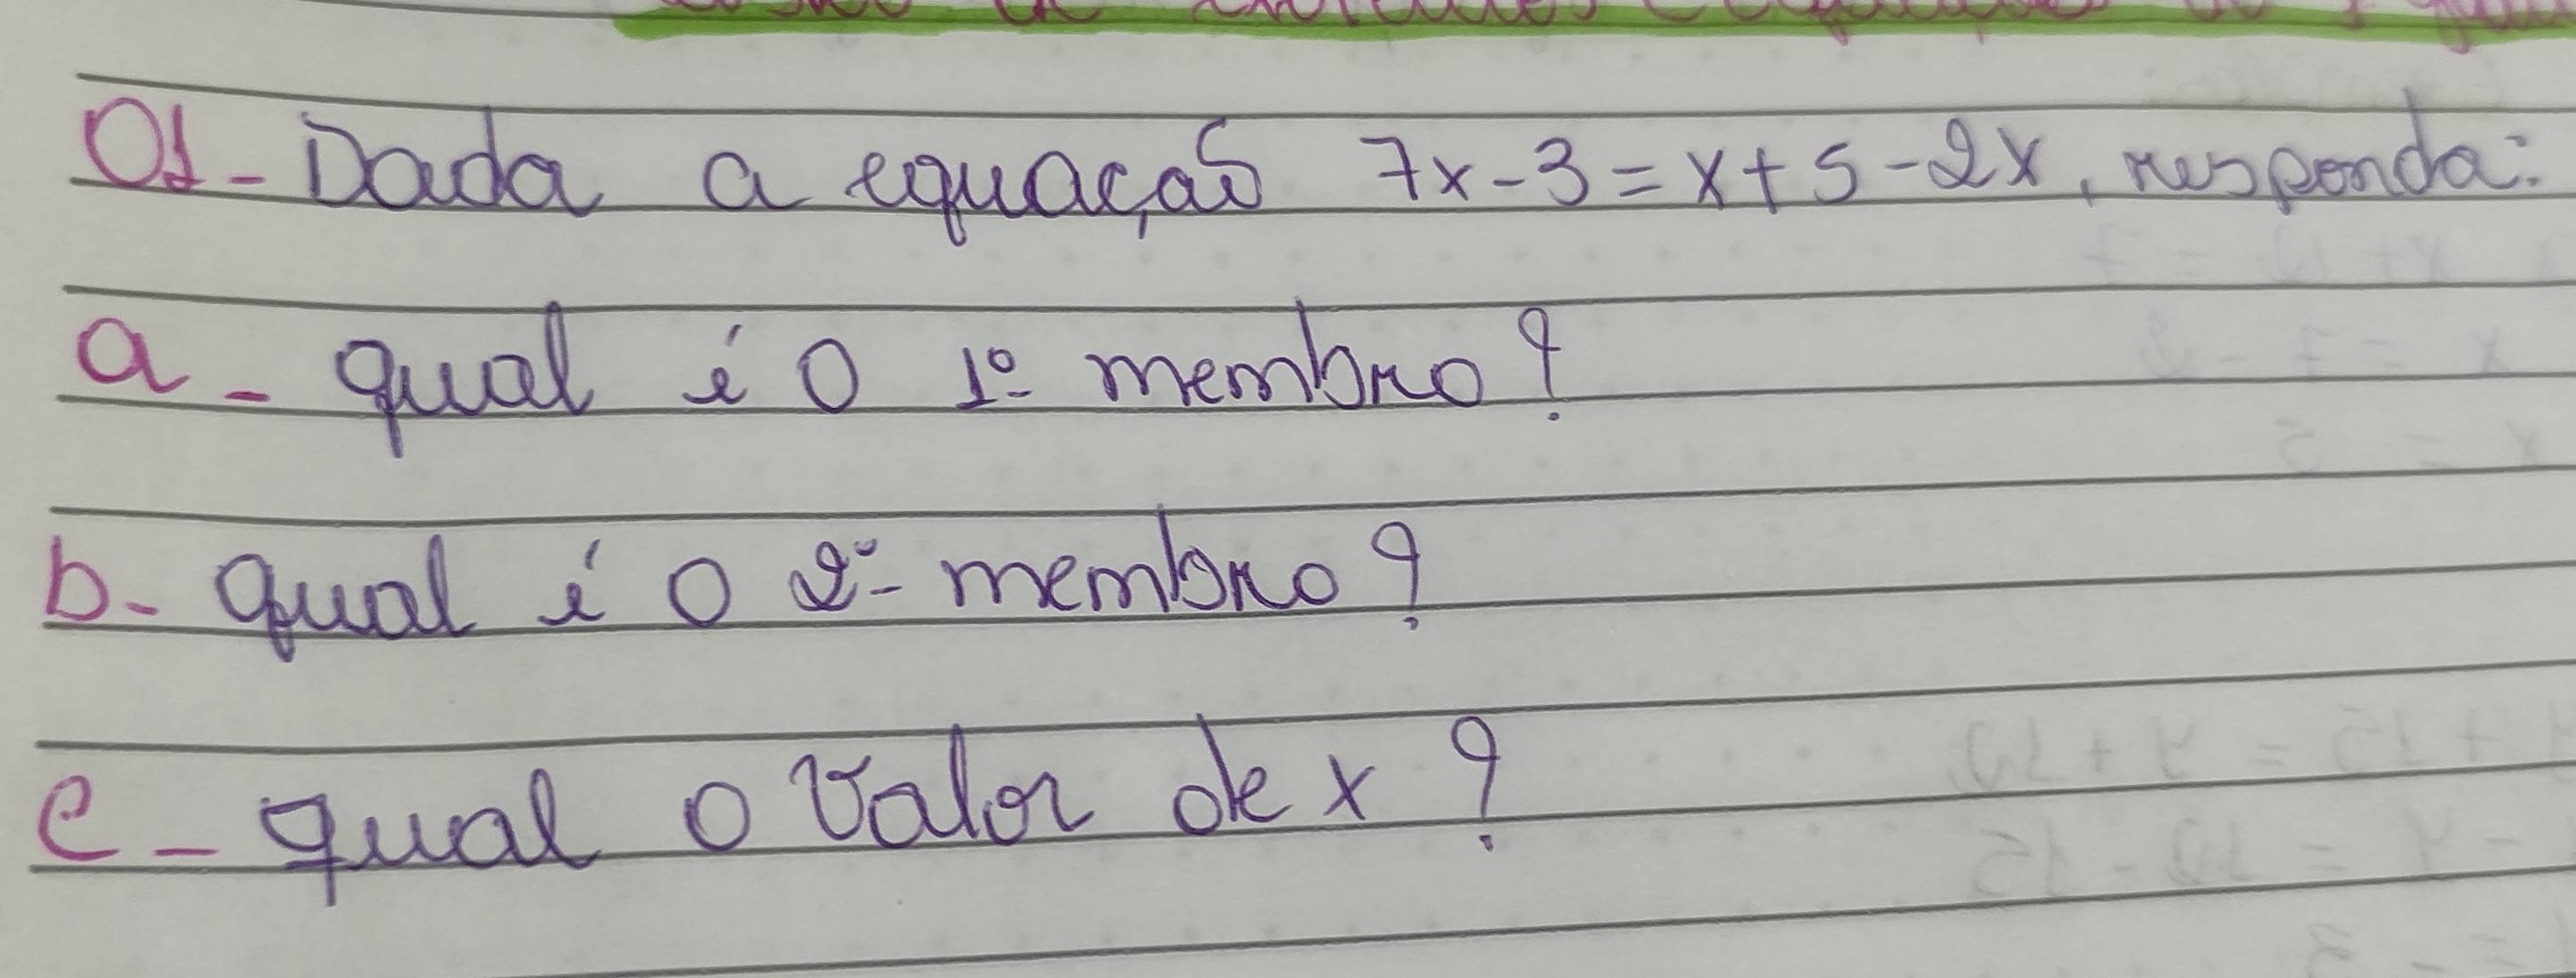 01- Dada a equação 7x-3=x+5-2x, responda:
a - qual é o 1º membro?
b- qual é o 2º membro?
c - qual o valor de x?